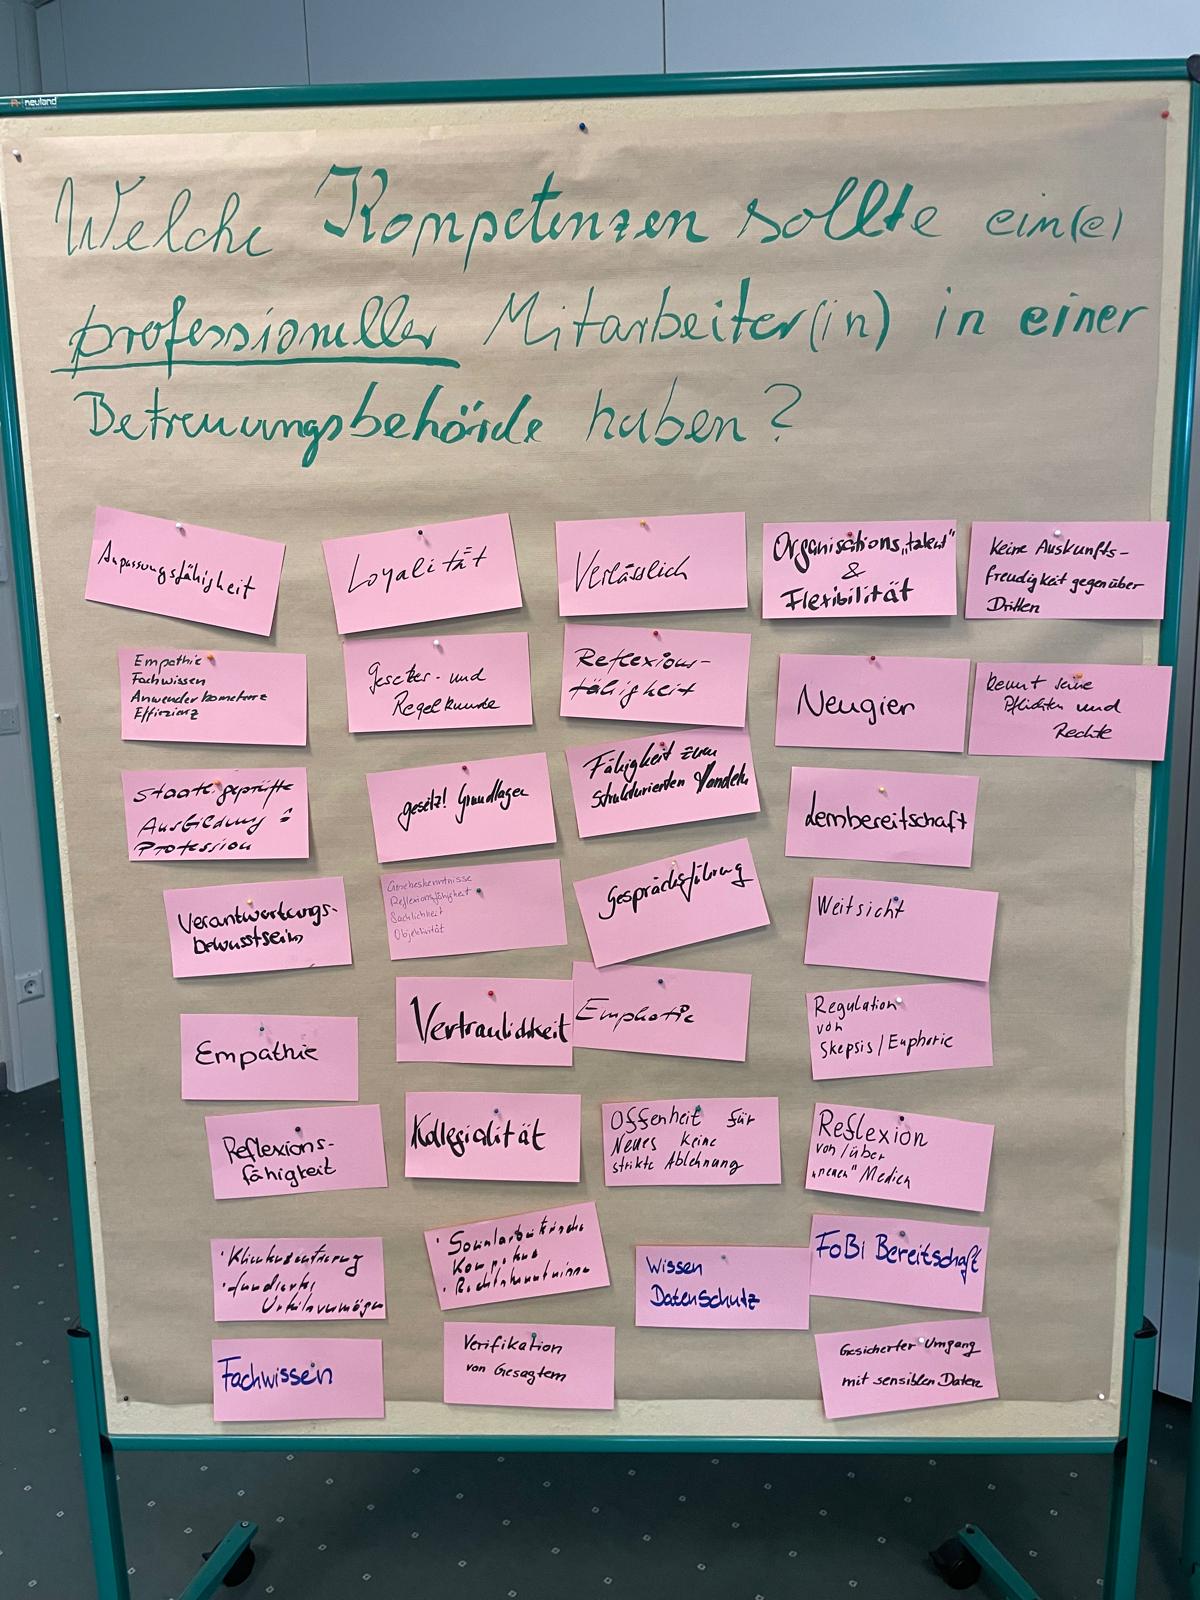 neuland
Welche Kompetenzen sollte ein(e)
professioneller Mitarbeiter(in) in einer
Betreuungsbehörde haben?
Anpassungsfähigkeit
Empathie
Fachwissen
Anwenderkometenz
Effizienz
Staatl. geprüfte
Ausbildung =
Profession
Verantwortungs-
bewusstsein
Empathie
Reflexions-
fähigkeit
· Klientenzentrierung
· fundiertes
Urteilsvermögen
Fachwissen
Loyalität
Gesetzes- und
Regelkunde
gesetzl. Grundlagen
Gesetzeskenntnisse
Reflexionsfähigkeit
Sachlichkeit
Objektivität
Vertraulichkeit
Kollegialität
· Sozialarbeiterische
· Rechtskenntnisse
Verifikation
von Gesagtem
Verlässlich
Reflexions-
fähigkeit
Fähigkeit zum
strukturierten Handeln
Gesprächsführung
Emphatie
Offenheit für
Neues keine
strikte Ablehnung
Wissen
Datenschutz
Organisations„talent"
&
Flexibilität
Neugier
Lernbereitschaft
Weitsicht
Regulation
von
Skepsis/Euphorie
Reflexion
von/über
„neuen" Medien
FoBi Bereitschaft
Gesicherter Umgang
mit sensiblen Daten
Keine Auskunfts-
freudigkeit gegenüber
Dritten
kennt seine
Pflichten und
Rechte